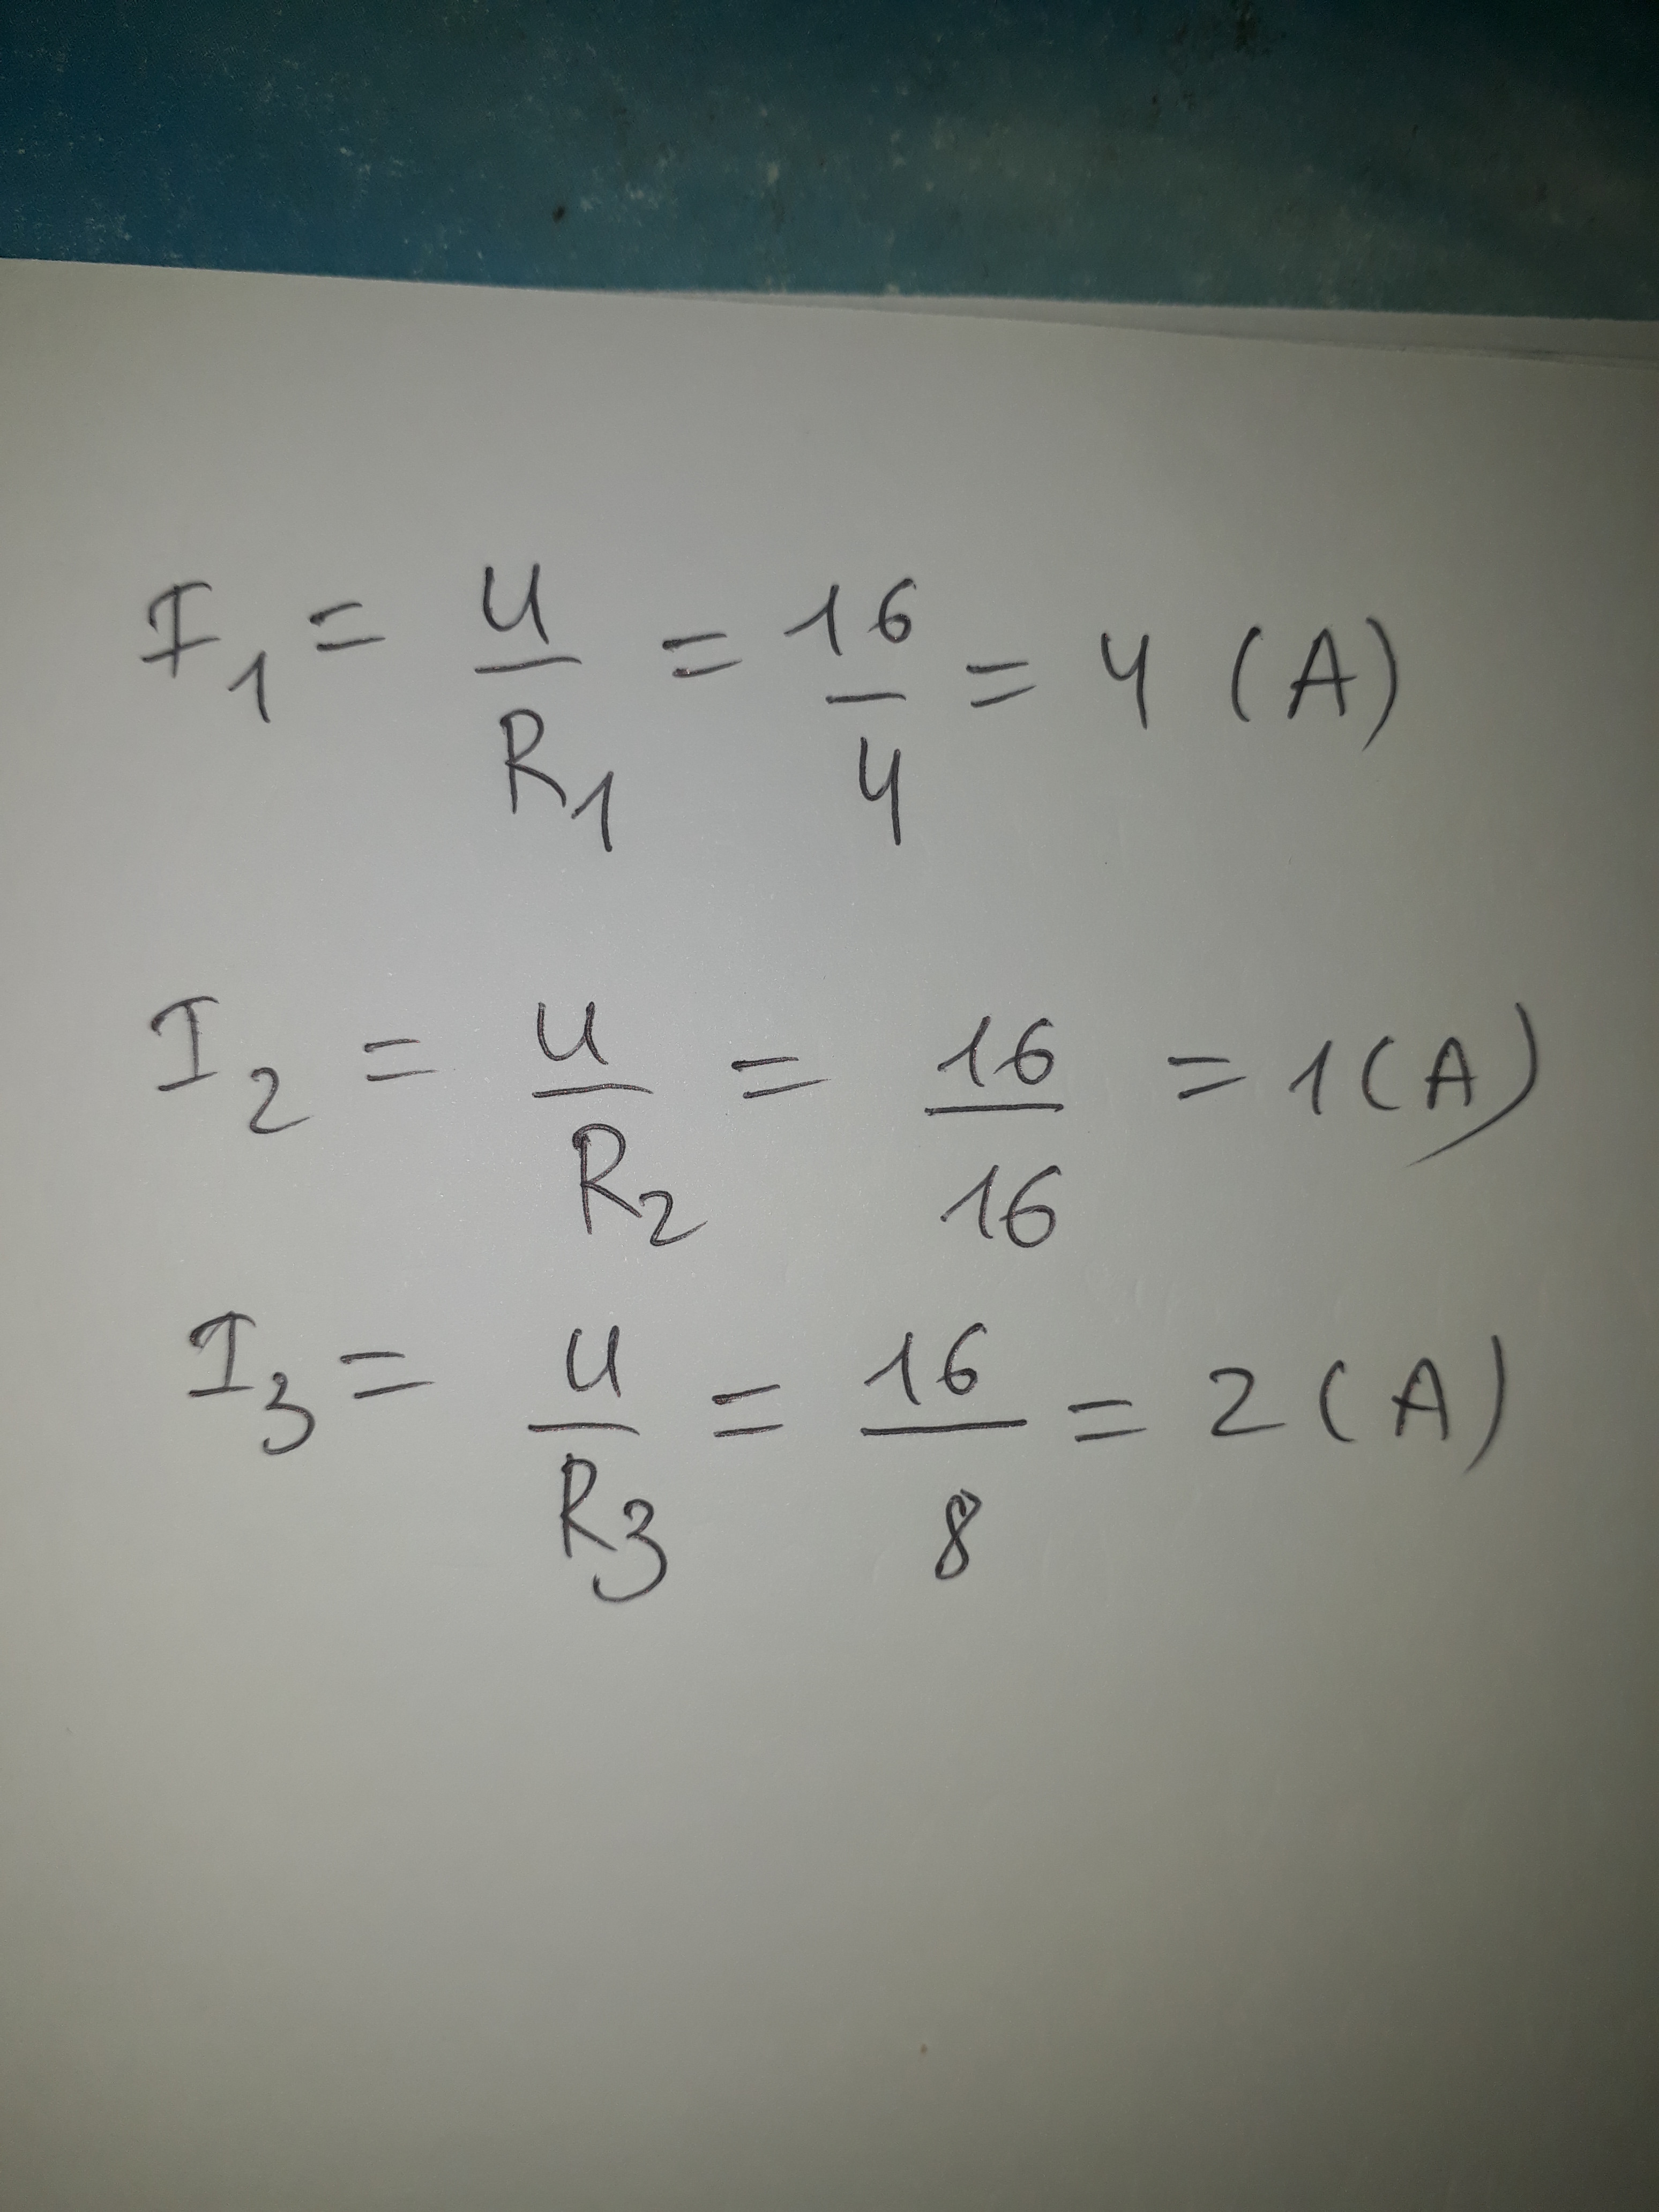 I₁ = U/R₁ = 16/4 = 4 (A)
I₂ = U/R₂ = 16/16 = 1 (A)
I₃ = U/R₃ = 16/8 = 2 (A)